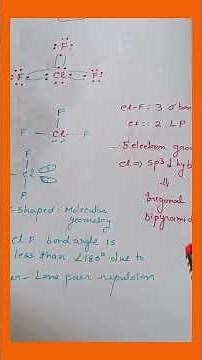 F
F Cl F
F
F Cl F
F
Cl
F
Cl-F: 3 σ bon
Cl: 2 LP
5 electron grou
Cl ⇒ Sp³d hyb
⇓
bipyramid
-Shaped: Molecular
geometry
Cl F bond angle is
less than ∠180° due to
- Lone pair repulsion